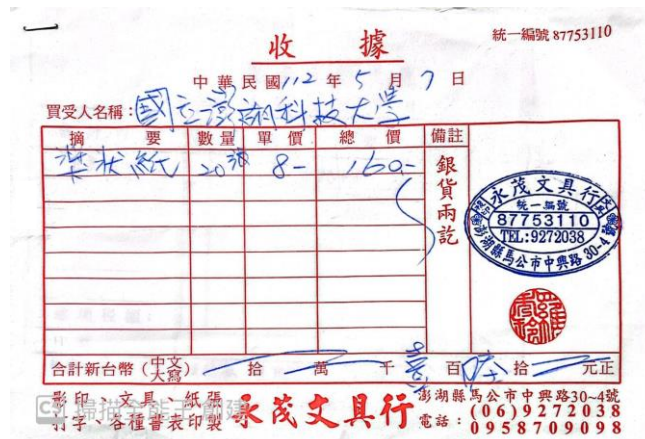 收據
統一編號 87753110
中華民國 112 年 5 月 7 日
買受人名稱：國立澎湖科技大學
摘要 數量 單價 總價 備註
奬狀紙 20張 8- 160-
銀貨兩訖
永茂文具行
統一編號
87753110
TEL:9272038
澎湖縣馬公市中興路30-4
合計新台幣（中文大寫） 拾 萬 千 壹 百 陸 拾 元正
影印、文具、紙張
打字、各種書表印製
永茂文具行
澎湖縣馬公市中興路30~4號
電話：(06)9272038
0958709098
CS 掃描全能王 創建